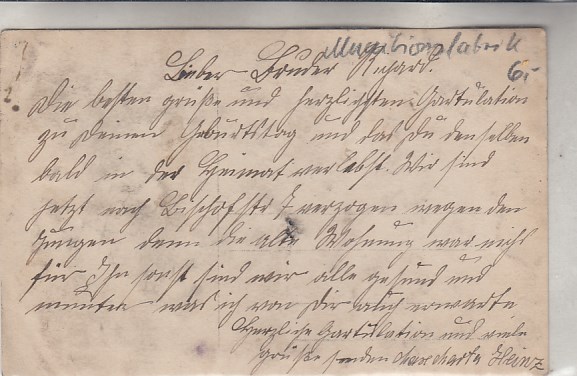 Munitionsfabrik
6,-
Lieber Bruder Richard.
Die besten grüße und herzlichsten Gartulation
zu Deinem Geburtstag und das Du denselben
bald in der Heimat verlebst. Wir sind
jetzt nach Bischofstr 7 verzogen wegen den
Jungen denn die alte Wohnung war nichts
für Ihn sonst sind wir alle gesund und
munter was ich von Dir auch erwarte
Herzliche Gartulation und viele
grüße senden Max Marta Heinz